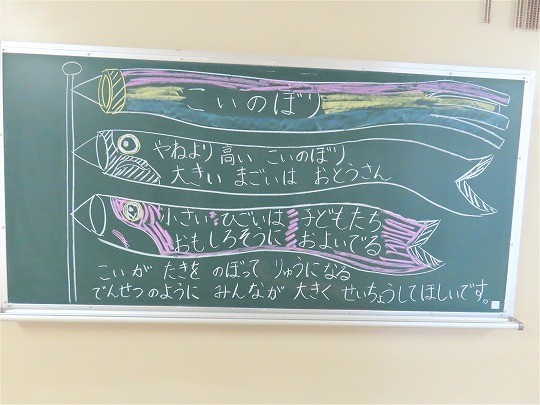 こいのぼり
やねより 高い こいのぼり
大きい まごいは おとうさん
小さい ひごいは 子どもたち
おもしろそうに およいでる
こいが たきを のぼって りゅうになる
でんせつのように みんなが 大きく せいちょうしてほしいです。